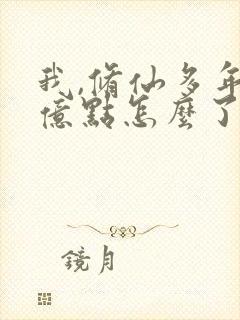 我,脩仙多年
億點怎麼了
鏡月